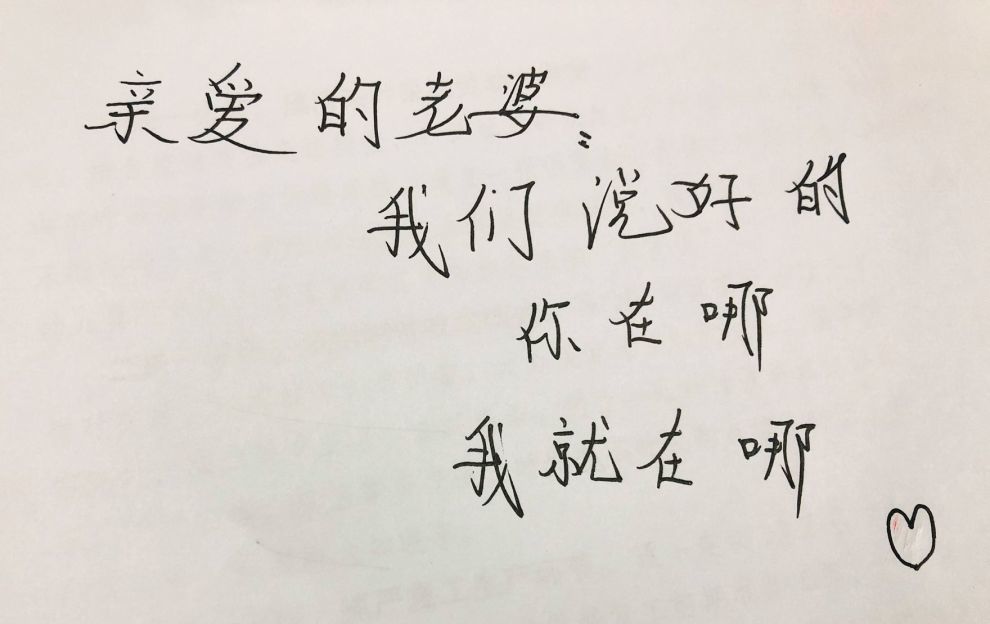 亲爱的老婆：
我们说好的
你在哪
我就在哪